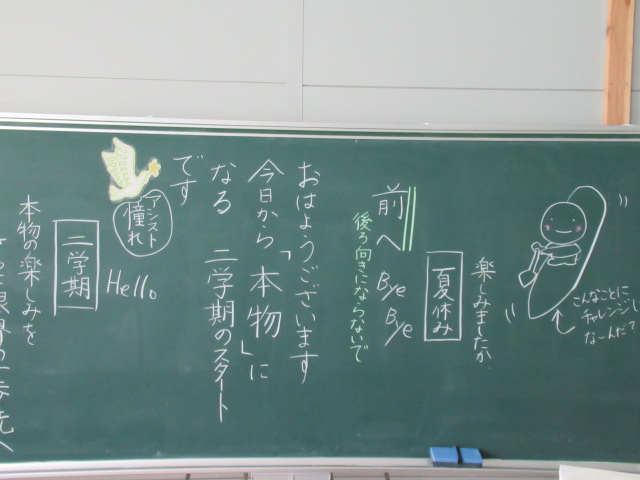 こんなことに
チャレンジし
な～んだ？
楽しみましたか
夏休み
Bye
Bye
前へ
後ろ向きにならないで
おはようございます
今日から「本物」に
なる 二学期のスタート
です
アシスト
憧れ
Hello
二学期
本物の楽しみを
限界の一歩先へ